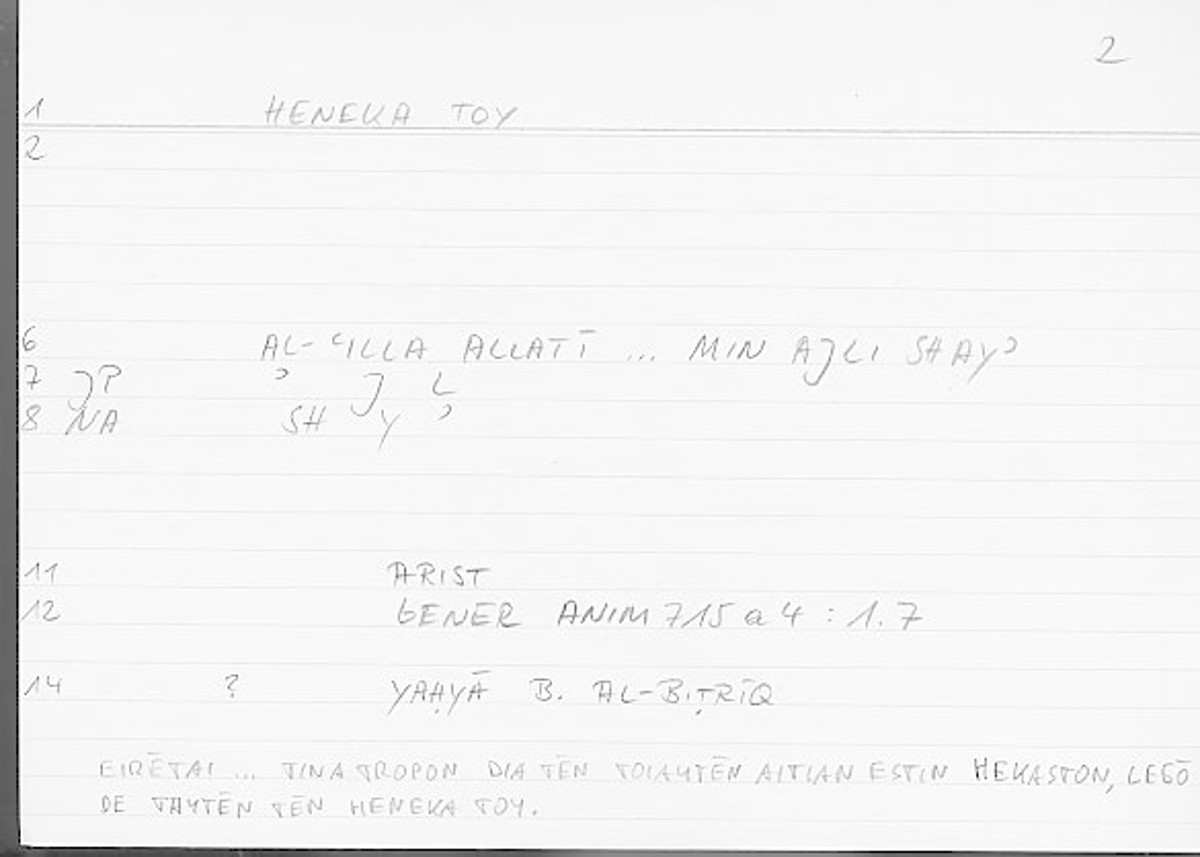 2
1 HENEKA TOY
2
6 AL-ʿILLA ALLATĪ ... MIN AJLI SHAYʾ
7 JP ʾ J L
8 NA SH Y ʾ
11 ARIST
12 GENER ANIM 715 a 4 : 1.7
14 ? YAḤYĀ B. AL-BIṬRĪQ
EIRĒTAI ... TINA TROPON DIA TĒN TOIAYTĒN AITIAN ESTIN HEKASTON, LEGŌ
DE TAYTĒN TĒN HENEKA TOY.